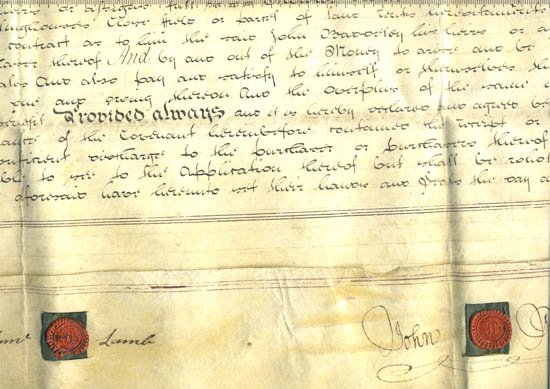 Close field or parcel of land
contract as to him the said John Baverley his heirs or
thereof And by and out of the Money to arise and be
Sales And also pay and satisfy to himself or themselves
due and owing thereon And the overplus of the same
benefit Provided always and it is hereby declared and agreed
of the Covenant hereinbefore contained the receipt or
sufficient discharge to the purchaser or purchasers thereof
to see to the Application thereof but shall be
aforesaid have hereunto set their hands and Seals the day
Lamb
John